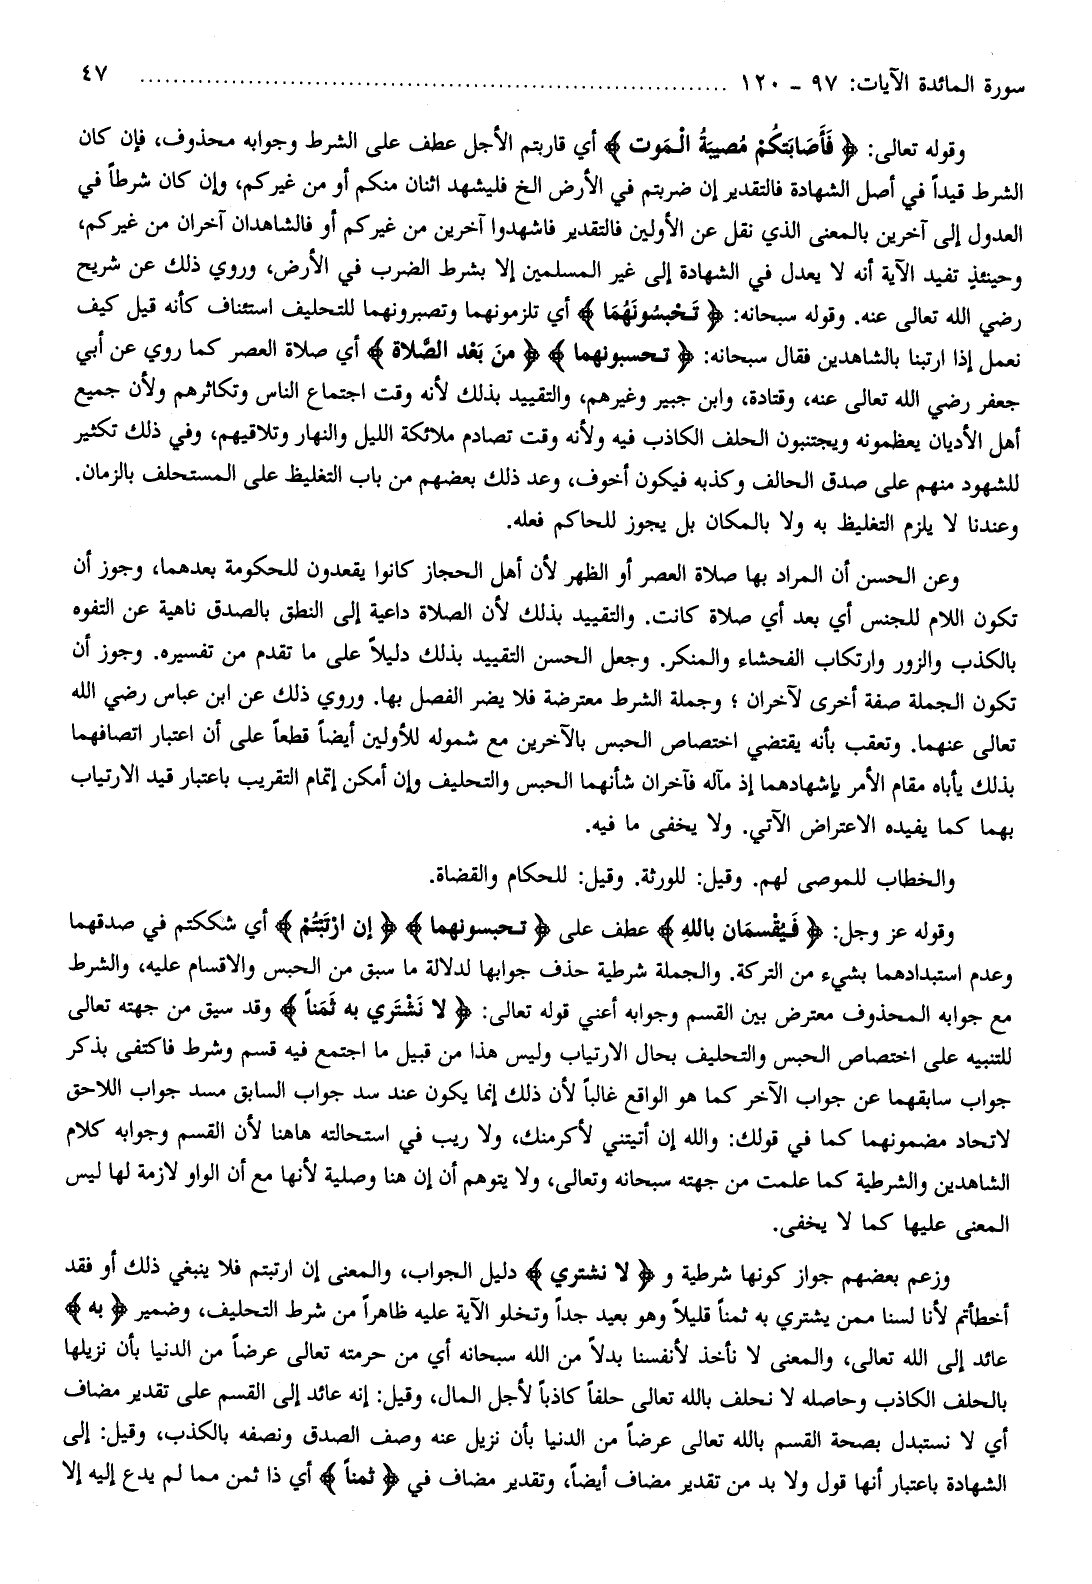 سورة المائدة الآيات: ٩٧ ــ ١٢٠ ........................................................................ ٤٧
وقوله تعالى: ﴿ فَأَصَابَتكُمْ مُصيبَةُ الْموت ﴾ أي قاربتم الأجل عطف على الشرط وجوابه محذوف، فإن كان
الشرط قيداً في أصل الشهادة فالتقدير إن ضربتم في الأرض الخ فليشهد اثنان منكم أو من غيركم، وإن كان شرطاً في
العدول إلى آخرين بالمعنى الذي نقل عن الأولين فالتقدير فاشهدوا آخرين من غيركم أو فالشاهدان آخران من غيركم،
وحينئذٍ تفيد الآية أنه لا يعدل في الشهادة إلى غير المسلمين إلا بشرط الضرب في الأرض، وروي ذلك عن شريح
رضي الله تعالى عنه. وقوله سبحانه: ﴿ تَحْبسُونَهُمَا ﴾ أي تلزمونهما وتصبرونهما للتحليف استئناف كأنه قيل كيف
نعمل إذا ارتبنا بالشاهدين فقال سبحانه: ﴿ تحسبونهما ﴾ ﴿ منَ بَعْد الصَّلاة ﴾ أي صلاة العصر كما روي عن أبي
جعفر رضي الله تعالى عنه، وقتادة، وابن جبير وغيرهم، والتقييد بذلك لأنه وقت اجتماع الناس وتكاثرهم ولأن جميع
أهل الأديان يعظمونه ويجتنبون الحلف الكاذب فيه ولأنه وقت تصادم ملائكة الليل والنهار وتلاقيهم، وفي ذلك تكثير
للشهود منهم على صدق الحالف وكذبه فيكون أخوف، وعد ذلك بعضهم من باب التغليظ على المستحلف بالزمان.
وعندنا لا يلزم التغليظ به ولا بالمكان بل يجوز للحاكم فعله.
وعن الحسن أن المراد بها صلاة العصر أو الظهر لأن أهل الحجاز كانوا يقعدون للحكومة بعدهما، وجوز أن
تكون اللام للجنس أي بعد أي صلاة كانت. والتقييد بذلك لأن الصلاة داعية إلى النطق بالصدق ناهية عن التفوه
بالكذب والزور وارتكاب الفحشاء والمنكر. وجعل الحسن التقييد بذلك دليلاً على ما تقدم من تفسيره. وجوز أن
تكون الجملة صفة أخرى لآخران ؛ وجملة الشرط معترضة فلا يضر الفصل بها. وروي ذلك عن ابن عباس رضي الله
تعالى عنهما. وتعقب بأنه يقتضي اختصاص الحبس بالآخرين مع شموله للأولين أيضاً قطعاً على أن اعتبار اتصافهما
بذلك يأباه مقام الأمر بإشهادهما إذ مآله فآخران شأنهما الحبس والتحليف وإن أمكن إتمام التقريب باعتبار قيد الارتياب
بهما كما يفيده الاعتراض الآتي. ولا يخفى ما فيه.
والخطاب للموصى لهم. وقيل: للورثة. وقيل: للحكام والقضاة.
وقوله عز وجل: ﴿ فَيُقْسمَان باللهِ ﴾ عطف على ﴿ تحبسونهما ﴾ ﴿ إن ارْتَبْتُمْ ﴾ أي شككتم في صدقهما
وعدم استبدادهما بشيء من التركة. والجملة شرطية حذف جوابها لدلالة ما سبق من الحبس والاقسام عليه، والشرط
مع جوابه المحذوف معترض بين القسم وجوابه أعني قوله تعالى: ﴿ لا نَشْتَري به ثَمَناً ﴾ وقد سيق من جهته تعالى
للتنبيه على اختصاص الحبس والتحليف بحال الارتياب وليس هذا من قبيل ما اجتمع فيه قسم وشرط فاكتفى بذكر
جواب سابقهما عن جواب الآخر كما هو الواقع غالباً لأن ذلك إنما يكون عند سد جواب السابق مسد جواب اللاحق
لاتحاد مضمونهما كما في قولك: والله إن أتيتني لأكرمنك، ولا ريب في استحالته هاهنا لأن القسم وجوابه كلام
الشاهدين والشرطية كما علمت من جهته سبحانه وتعالى، ولا يتوهم أن إن هنا وصلية لأنها مع أن الواو لازمة لها ليس
المعنى عليها كما لا يخفى.
وزعم بعضهم جواز كونها شرطية و ﴿ لا نشتري ﴾ دليل الجواب، والمعنى إن ارتبتم فلا ينبغي ذلك أو فقد
أخطأتم لأنا لسنا ممن يشتري به ثمناً قليلاً وهو بعيد جداً وتخلو الآية عليه ظاهراً من شرط التحليف، وضمير ﴿ به ﴾
عائد إلى الله تعالى، والمعنى لا نأخذ لأنفسنا بدلاً من الله سبحانه أي من حرمته تعالى عرضاً من الدنيا بأن نزيلها
بالحلف الكاذب وحاصله لا نحلف بالله تعالى حلفاً كاذباً لأجل المال، وقيل: إنه عائد إلى القسم على تقدير مضاف
أي لا نستبدل بصحة القسم بالله تعالى عرضاً من الدنيا بأن نزيل عنه وصف الصدق ونصفه بالكذب، وقيل: إلى
الشهادة باعتبار أنها قول ولا بد من تقدير مضاف أيضاً، وتقدير مضاف في ﴿ ثمناً ﴾ أي ذا ثمن مما لم يدع إليه إلا